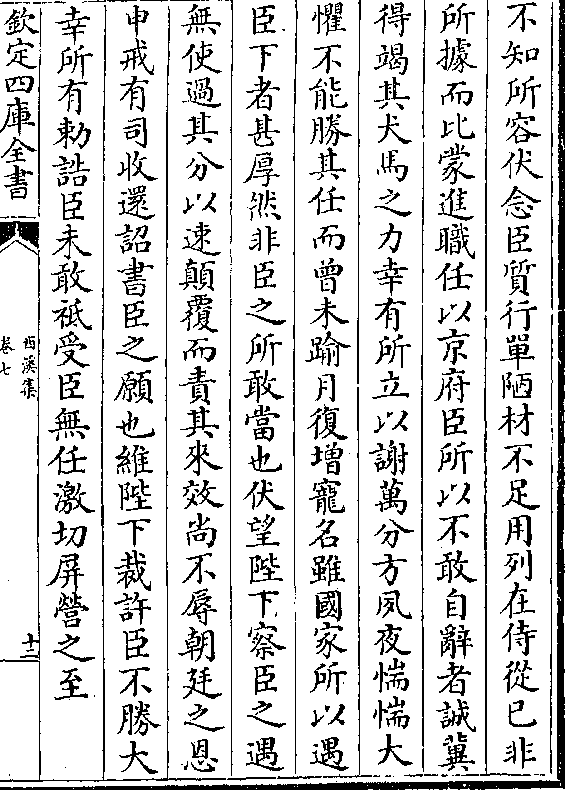 不知所容伏念臣質行單陋材不足用列在侍從已非
所據而比蒙進職任以京府臣所以不敢自辭者誠冀
得竭其犬馬之力幸有所立以謝萬分方夙夜惴惴大
懼不能勝其任而曾未踰月復增寵名雖國家所以遇
臣下者甚厚然非臣之所敢當也伏望陛下察臣之遇
無使過其分以速顛覆而責其來效尚不辱朝廷之恩
申戒有司收還詔書臣之願也維陛下裁許臣不勝大
幸所有勅誥臣未敢祗受臣無任激切屏營之至
欽定四庫全書
西溪集
卷七
十二